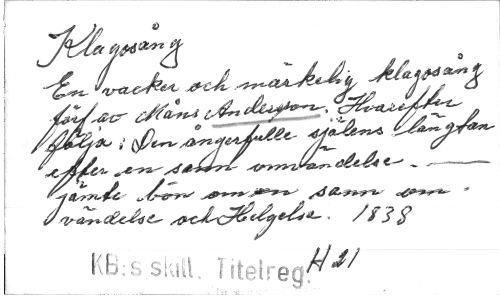 Klagosång
En vacker och märkelig klagosång
förf. av Måns Anderson. Hvarefter
följa: Den ångerfulle själens längtan
efter en sann omvändelse. —
jämte bön om en sann om-
vändelse och Helgelse. 1838
KB:s skill. Titelreg. H 21